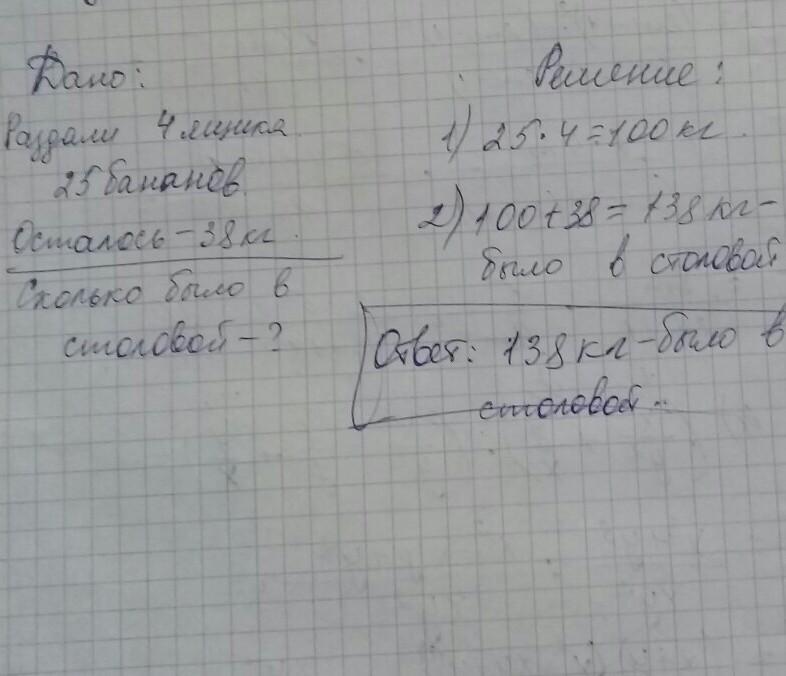 Дано:
Раздали 4 ящика
25 бананов
Осталось - 38 кг.
Сколько было в
столовой - ?
Решение:
1) 25 · 4 = 100 кг.
2) 100 + 38 = 138 кг -
было в столовой
Ответ: 138 кг - было в
столовой..